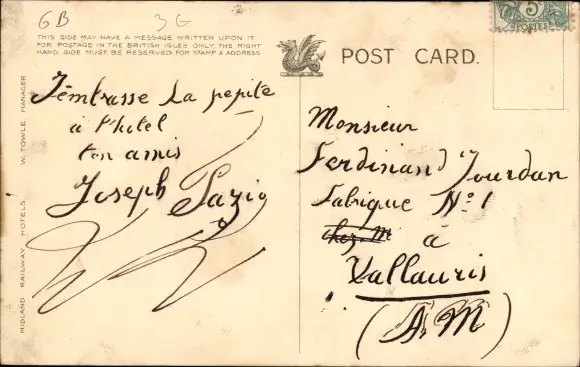 6B 3G
THIS SIDE MAY HAVE A MESSAGE WRITTEN UPON IT
FOR POSTAGE IN THE BRITISH ISLES ONLY, THE RIGHT
HAND SIDE MUST BE RESERVED FOR STAMP & ADDRESS
MIDLAND RAILWAY HOTELS W. TOWLE, MANAGER
J'embrasse La pepite
à l'hotel
ton amis
Joseph
POST CARD.
5
POSTES
Monsieur
Ferdinand Jourdan
Fabrique No 1
chez M à
Vallauris
(A. M)